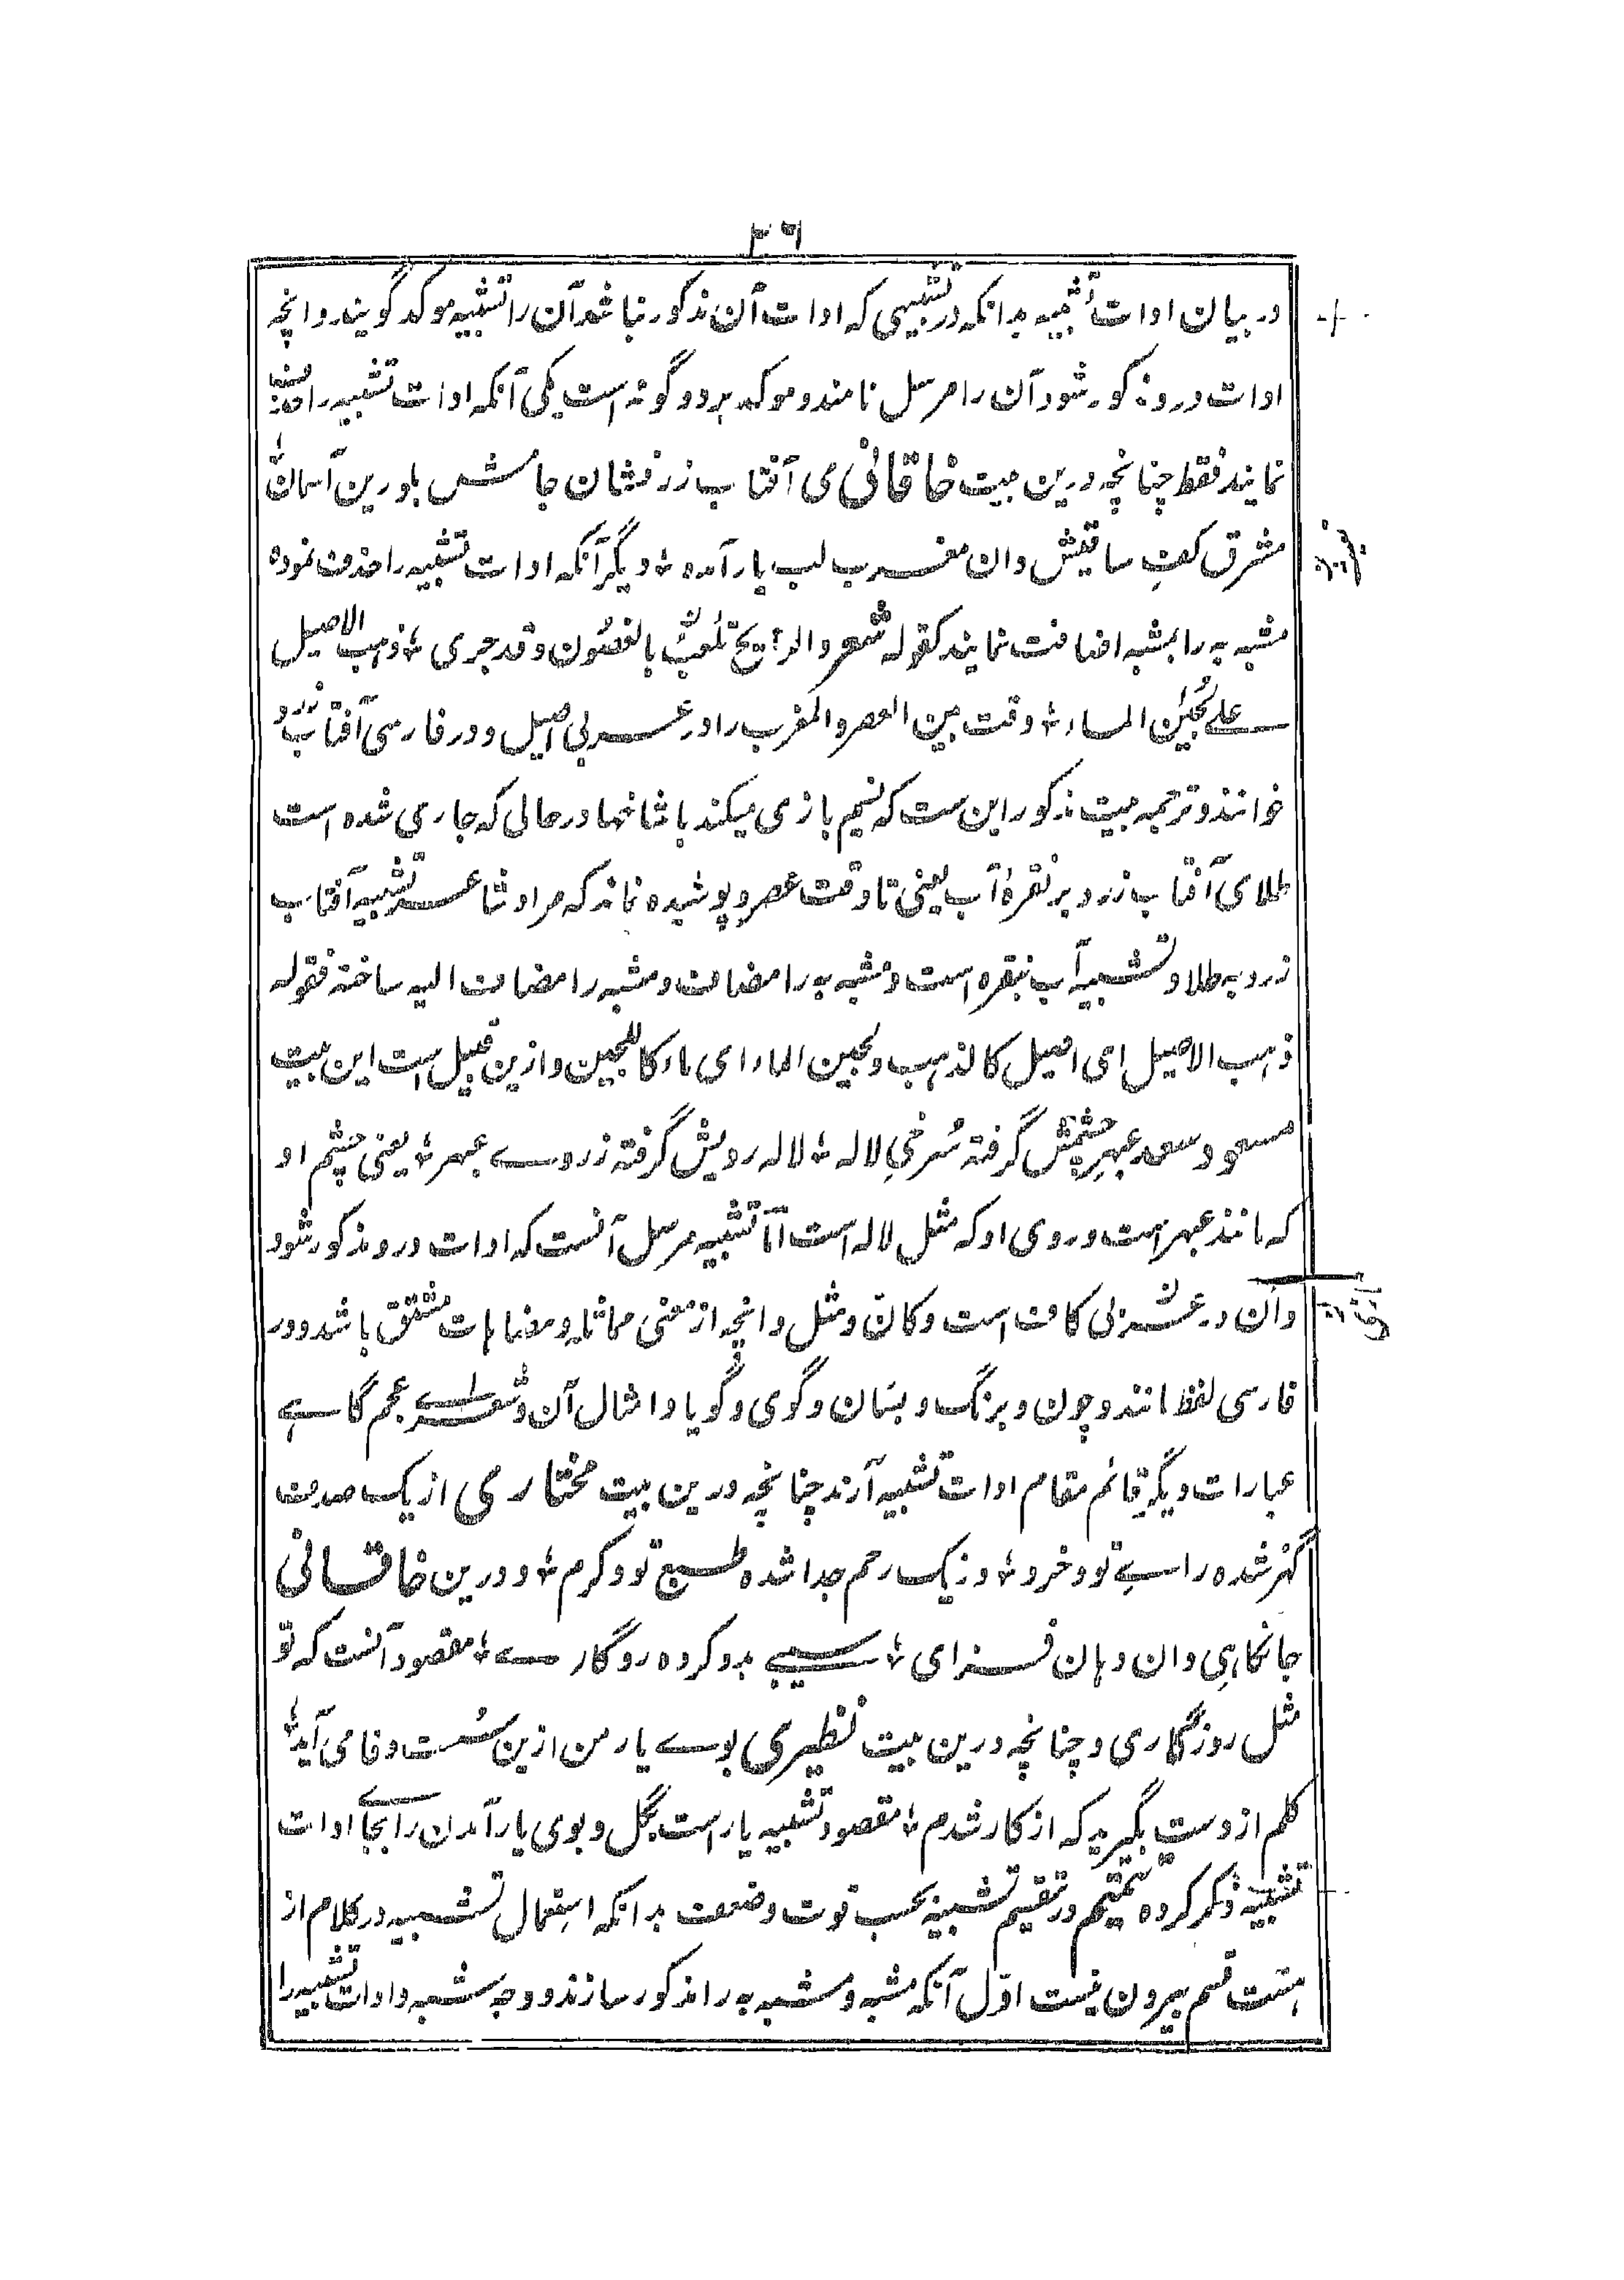 ۲۶
در بیان ادات تشبیه بدانکه در تشبیهی که ادات آن مذکور نباشد آن را تشبیه موکد گویند و انچه
ادات درو مذکور شود آن را مرسل نامند و موکد بر دو گونه است یکی آنکه ادات تشبیه را حذف
نمایند فقط چنانچه درین بیت خاقانی می آفتاب زرفشان جامش بلورین آسمان
مشرق کف ساقیش دان مغرب لب یار آمده ؛ دیگر آنکه ادات تشبیه را حذف نموده
مشبه به را بمشبه اضافت نمایند کقوله شعر والریح تلعب بالغصون وقد جری ؛ ذهب الاصیل
علے لجین الماء ؛ وقت بین العصر والمغرب را در عربی اصیل و در فارسی آفتاب زرد
خوانند و ترجمه بیت مذکور این ست که نسیم بازی میکند با شاخها در حالی که جاری شده است
طلای آفتاب زرد بر نقره آب یعنی تا وقت عصر و پوشیده نماند که مراد شاعر تشبیه آفتاب
زرد به طلا و تشبیه آب بنقره است و مشبه به را مضاف و مشبه را مضاف الیه ساخته فقوله
ذهب الاصیل ای اصیل کالذهب و لجین الماء ای ماء کاللجین و ازین قبیل است این بیت
مسعود سعد عبهر چشمش گرفته سُرخیِ لاله ؛ لاله رویش گرفته زردے عبهر ؛ یعنی چشم او
که مانند عبهر است و روی او که مثل لاله است امّا تشبیه مرسل آنست که ادات درو مذکور شود
و آن در عربی کاف است و کانّ و مثل و انچه از معنی مماثله و مضاهات مشتق باشد و در
فارسی لفظ مانند و چون و برنگ و بسان و گوی و گویا و امثال آن و شعرائے عجم گاہے
عبارات دیگر قائم مقام ادات تشبیه آرند چنانچه درین بیت مختاری از یک صدف
گهر شده رائے تو و خرد ؛ وز یک رحم جدا شده طبع تو و کرم ؛ و درین خاقانی
جانکاهی وان دهان فزای ؛ سیبے بدو کرده روگارے ؛ مقصود آنست که تو
مثل روزگاری و چنانچه درین بیت نظیری بوے یار من ازین سُست وفا می آید
گلم از دست بگیرید که از کار شدم ؛ مقصود تشبیه یار است بگل و بوی یار آمدن را بجاے ادات
تشبیه ذکر کرده تتمیم در تقسیم تشبیه بحسب قوت و ضعف بدانکه استعمال تشبیه در کلام از
هشت قسم بیرون نیست اوّل آنکه مشبه و مشبه به را مذکور سازند و وجه شبه و ادات تشبیه را